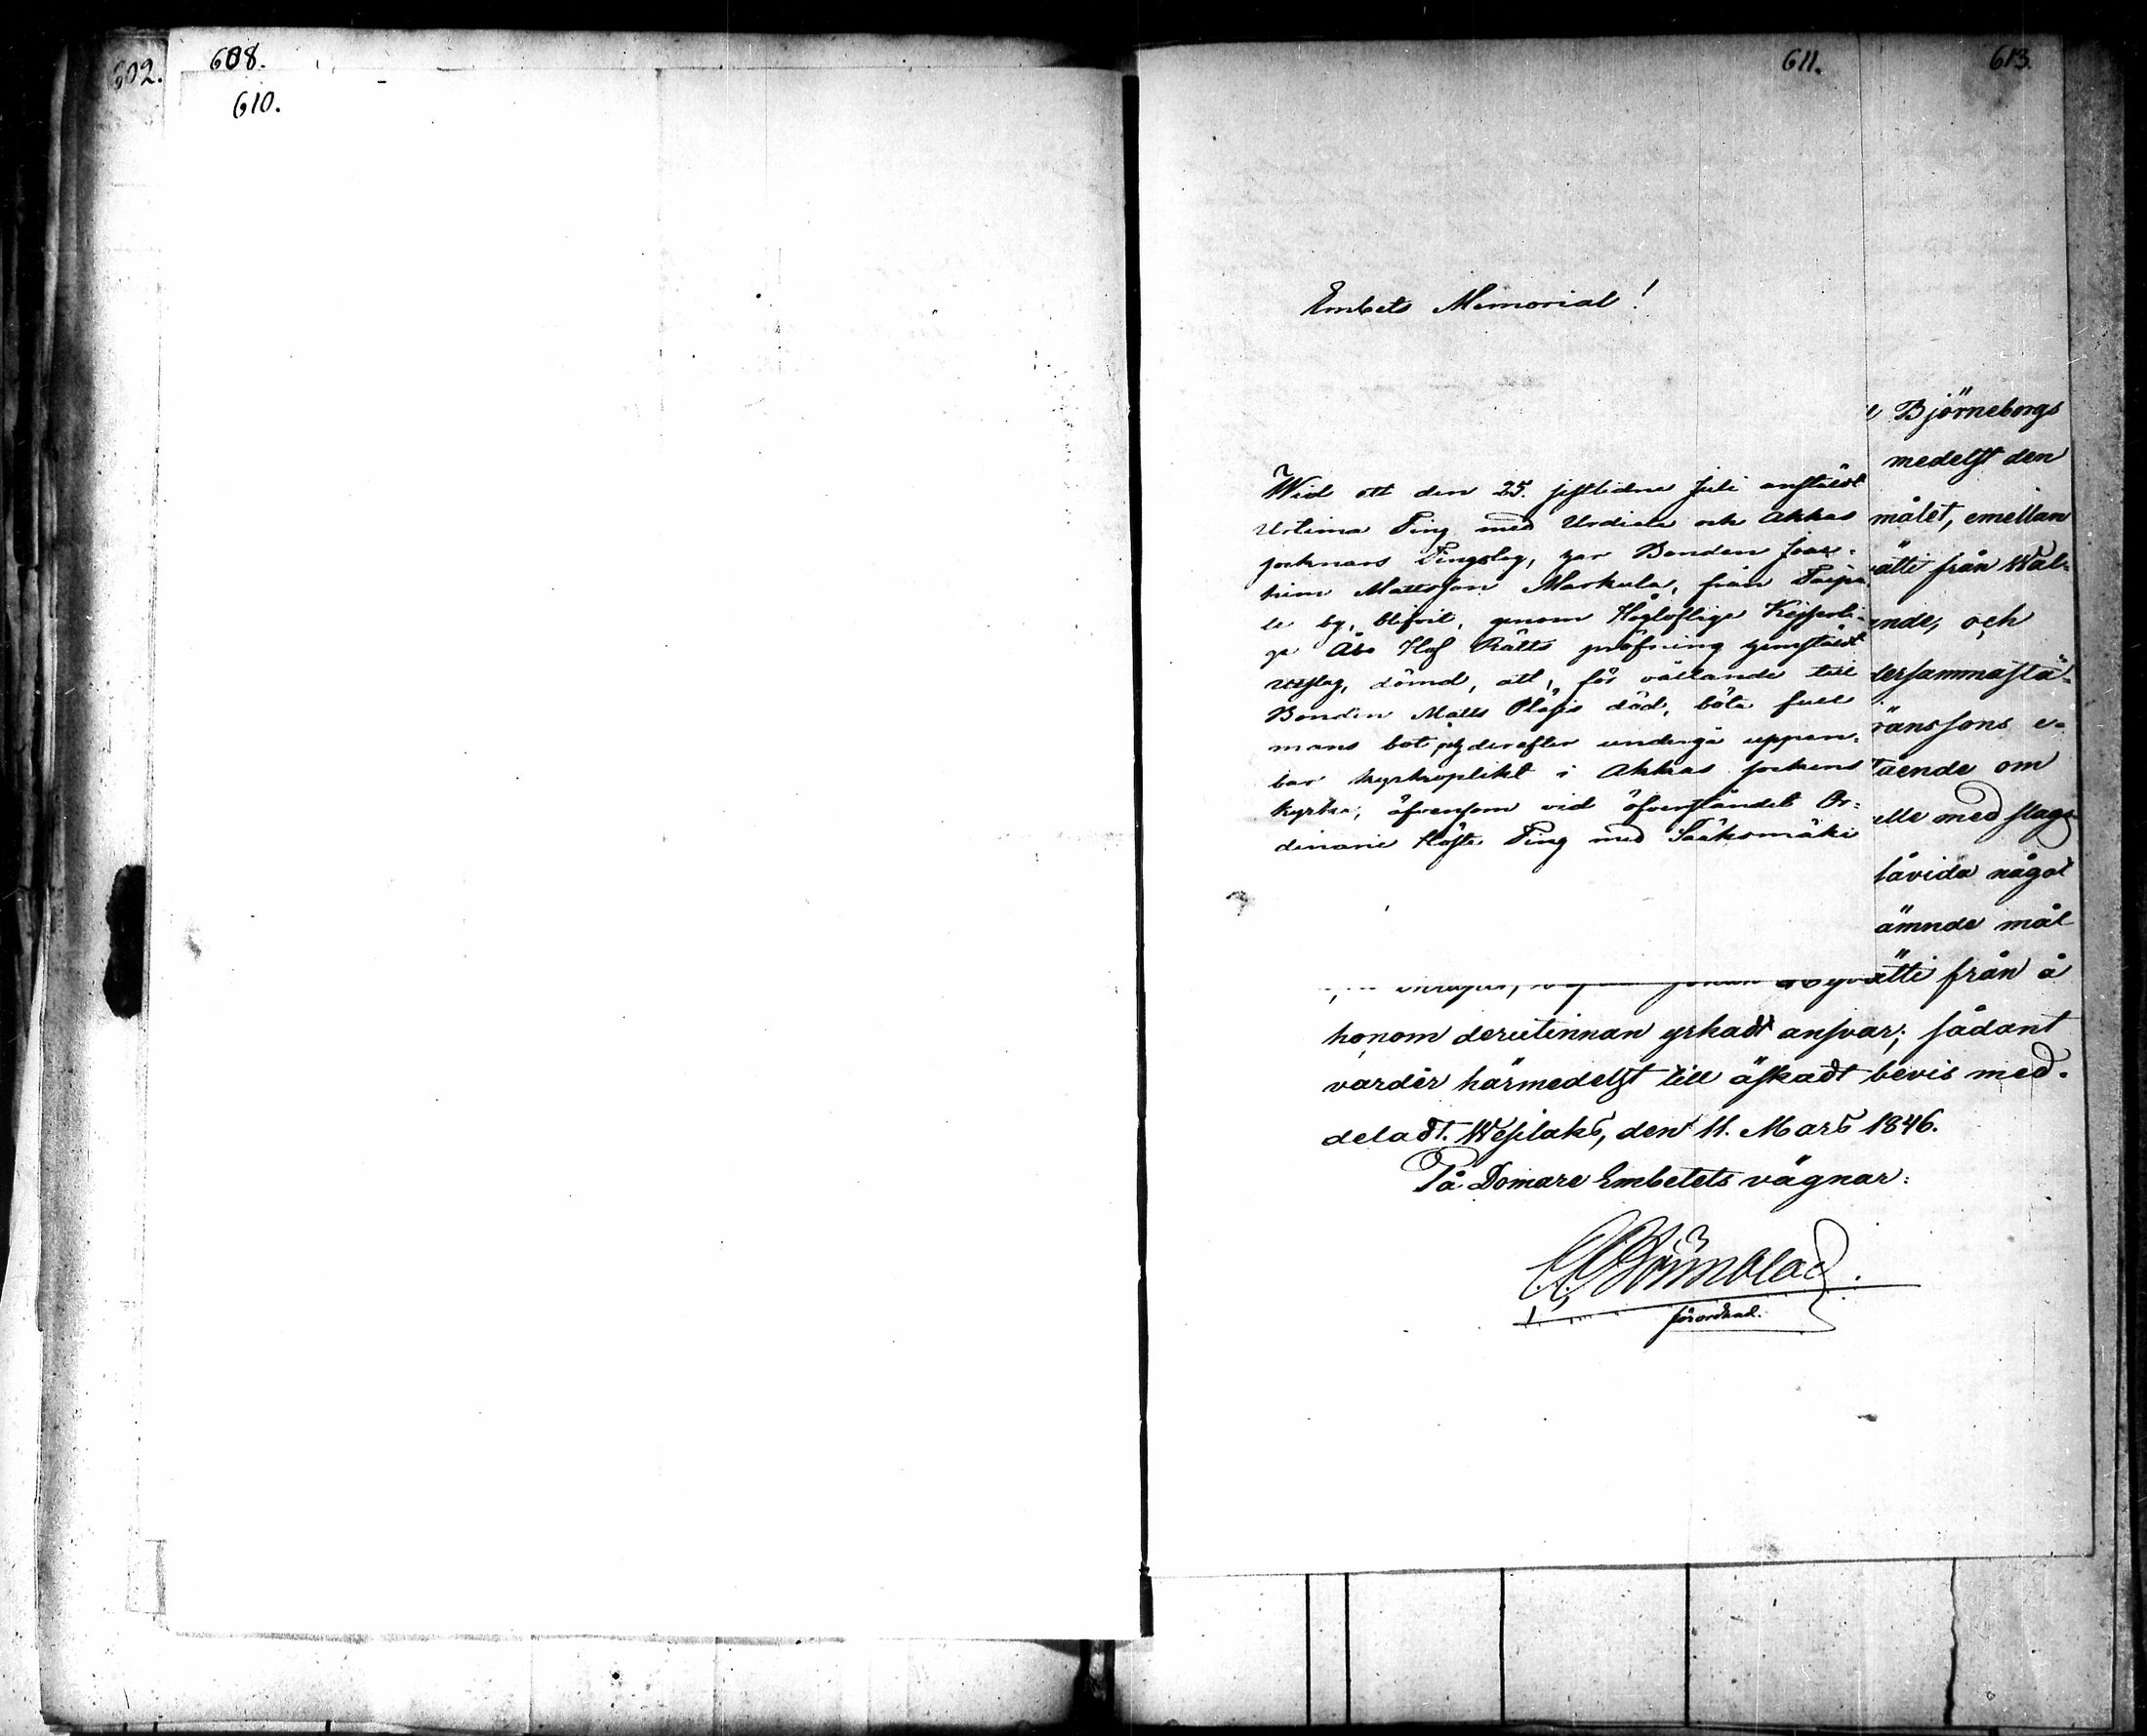 602.
608.
610.
611.
613.
Embets Memorial!
Wid ett den 25. sistlidne Juli anstäldt
Urtima Ting med Urdiala och Akkas
socknars Tingslag, har Bonden Joac-
him Mattsson Markula, från Taipa-
le by, blifvit, genom Högloflige Kejserli-
ga Åbo Hof Rätts pröfning hemstäldt
utslag, dömd, att, för vållande till
Bonden Matts död, böta full
mans bot och derefter undergå uppen-
bar kyrkoplikt i Akkas sockens
kyrka; äfvensom vid öfverståndet Or-
dinarie Höste Ting med Sääksmäki
Björneborgs
medelst den
målet, emellan
ätti från Wal-
nde, och
dersammastä-
ränssons e-
tående om
elle med slags
såvida något
ämnde mål
ätti från å
honom derutinnan yrkadt ansvar; sådant
varder härmedelst till äskadt bevis med-
deladt. Wesilaks, den 11. Mars 1846.
På Domare Embetets vägnar:
förordnad.